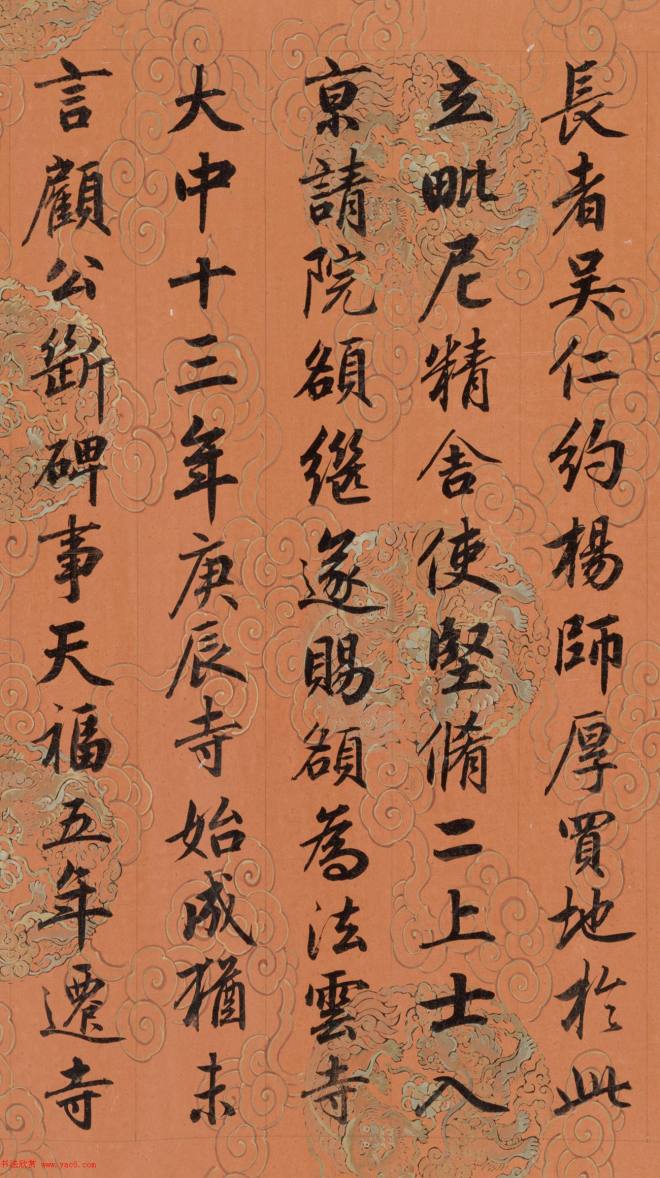 長者吳仁約楊師厚買地於此
立毗尼精舍使堅脩二上士入
京請院額繼遂賜額為法雲寺
大中十三年庚辰寺始成猶未
言顧公斷碑事天福五年遷寺
书法欣赏 www.yac8.com